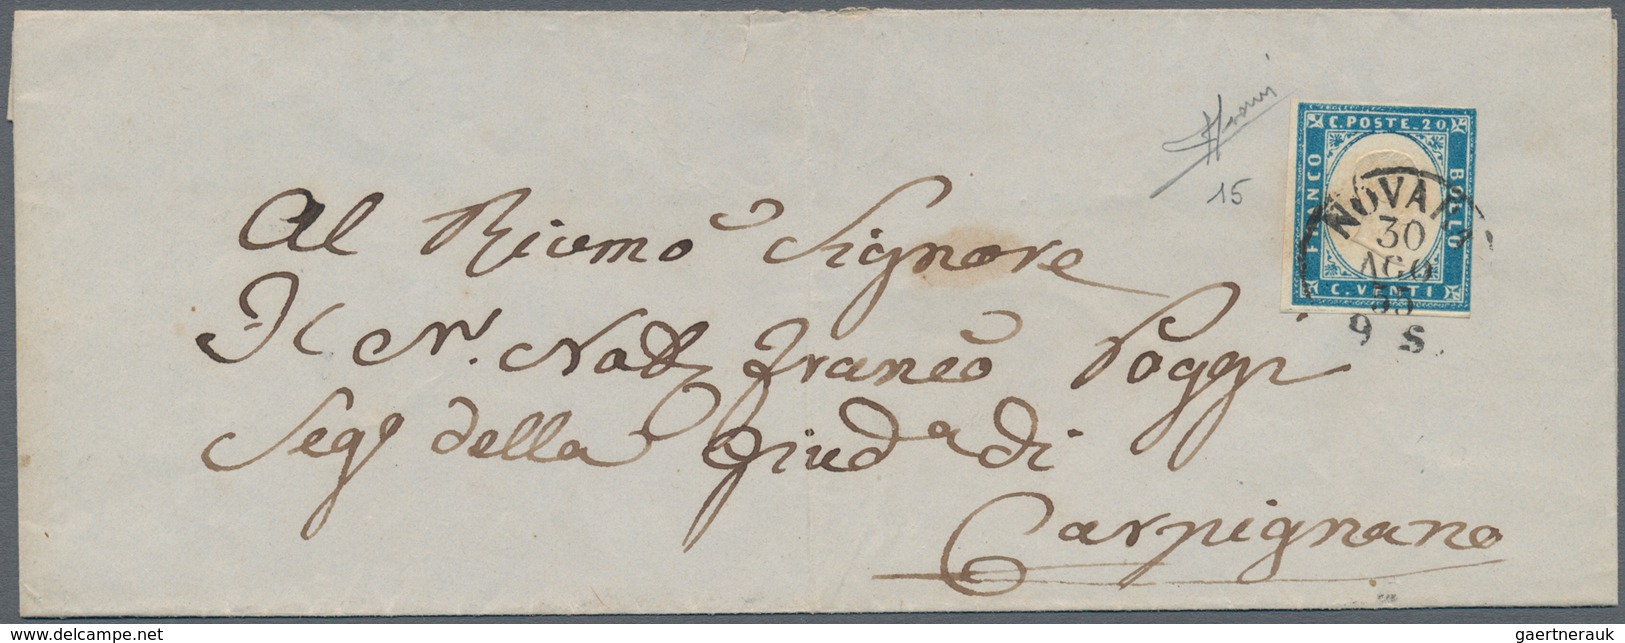 C. POSTE. 20
FRANCO
BOLLO
C. VENTI
NOVARA
30
AGO
55
9 S
15
Al Riv͞mo Signore
Il Sr. Not° Franco Poggi
Segº della Giuda di
Carpignano
delcampe.net
gaertnerauk